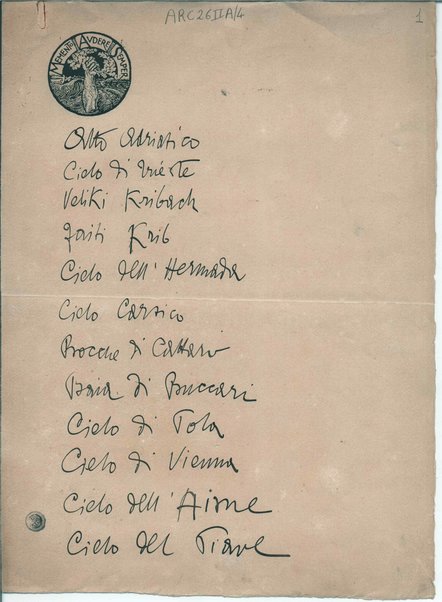 ARC 26 II A/4
1
MEMENTO AVDERE SEMPER
Alto Adriatico
Cielo di Trieste
Veliki Kribach
Faiti Krib
Cielo dell' Hermada
Cielo Carsico
Bocche di Cattaro
Baia di Buccari
Cielo di Pola
Cielo di Vienna
Cielo dell' Aisne
Cielo del Piave